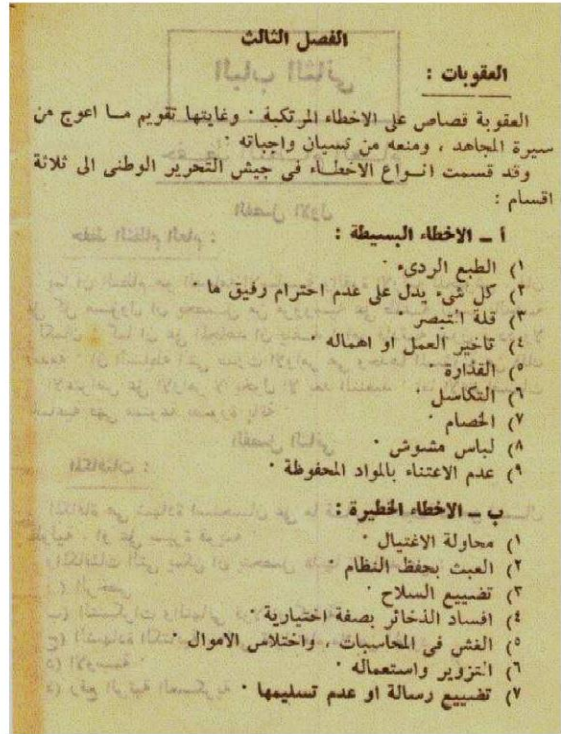 الفصل الثالث
العقوبات :
العقوبة قصاص على الاخطاء المرتكبة . وغايتها تقويم مـا اعوج من
سيرة المجاهد ، ومنعه من نسيان واجباته .
وقد قسمت انـواع الاخطـاء فى جيش التحرير الوطنى الى ثلاثة
اقسام :
أ ـ الاخطاء البسيطة :
١) الطبع الردىء .
٢) كل شىء يدل على عدم احترام رفيق ما .
٣) قلة التبصر .
٤) تأخير العمل او اهماله .
٥) القذارة .
٦) التكاسل .
٧) الخصام .
٨) لباس مشوش .
٩) عدم الاعتناء بالمواد المحفوظة .
ب ـ الاخطاء الخطيرة :
١) محاولة الاغتيال .
٢) العبث بحفظ النظام .
٣) تضييع السلاح .
٤) افساد الذخائر بصفة اختيارية .
٥) الغش فى المحاسبات ، واختلاس الاموال .
٦) التزوير واستعماله .
٧) تضييع رسالة او عدم تسليمها .